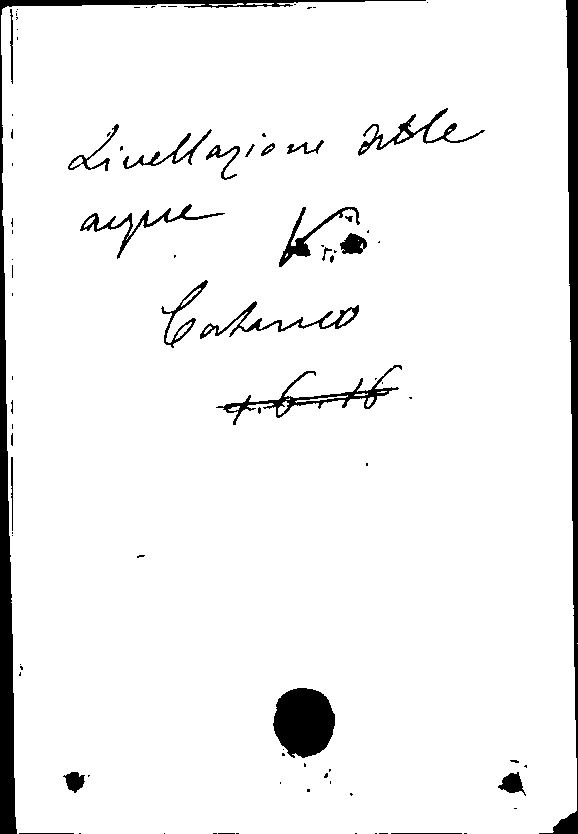 Livellazione delle
acque V.
Cataneo
1.6.16